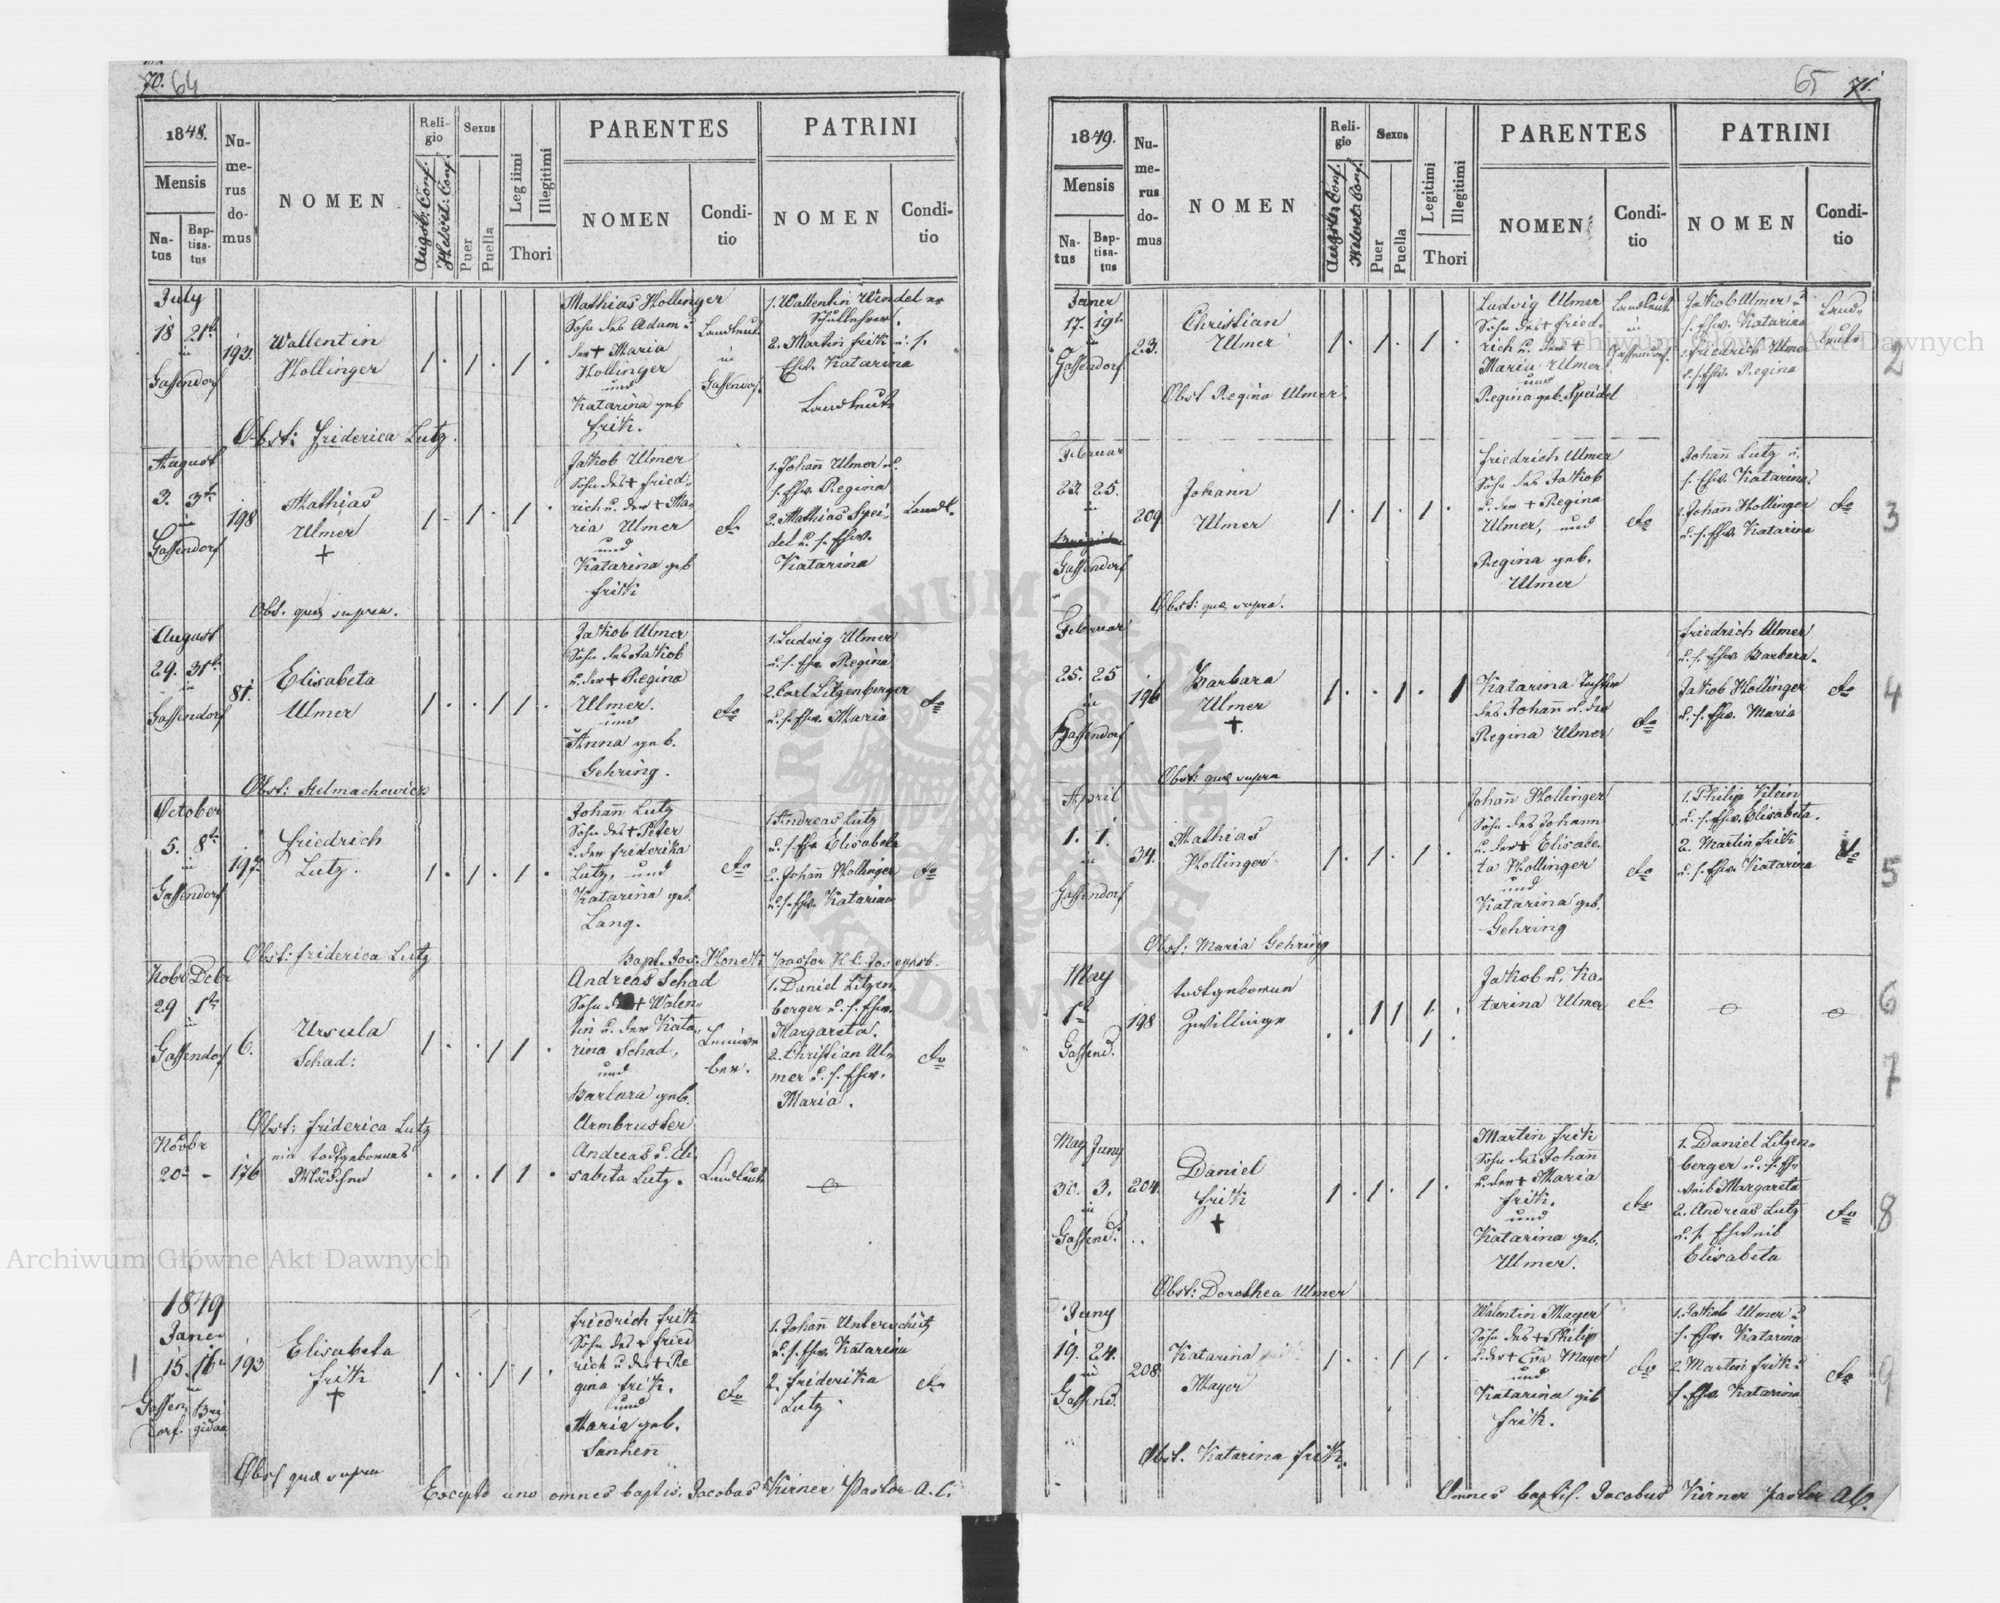 70. 64
1848.
Mensis
Na-
tus
Bap-
tisa-
tus
Nu-
me-
rus
do-
mus
NOMEN
Reli-
gio
Augsb: Conf.
Helvet: Conf.
Sexus
Puer
Puella
Legitimi
Illegitimi
Thori
PARENTES
NOMEN
Condi-
tio
PATRINI
NOMEN
Condi-
tio
July
18 21t
in
Gassendorf
193.
Wallentin
Hollinger
1 . 1 . 1 .
Mathias Hollinger
Sohn des Adam u
der + Maria
Hollinger
und
Katarina geb
Frik.
Landleut
in
Gassendorf.
1. Wallentin Wendel
Schullehrer.
2. Martin Frik u. s.
Ehw. Katarina
Landleute
Obst: Friderica Lutz.
August
3. 3t
in
Gassendorf
198
Mathias
Ulmer
+
1 . 1 . 1 .
Jakob Ulmer
Sohn des + Fried-
rich u. der + Ma-
ria Ulmer
und
Katarina geb
Frik
do
1. Johann Ulmer u.
s. Ehw. Regina
2. Mathias Spei-
del u. s. Ehw.
Katarina
Landl.
Obst. quæ supra.
August
29. 31t
in
Gassendorf
81.
Elisabeta
Ulmer
1 . . 1 1 .
Jakob Ulmer
Sohn des Jakob
u. der + Regina
Ulmer.
und
Anna geb.
Gehring.
do
1. Ludvig Ulmer
u. s. Ehw. Regina
2. Carl Litzenberger
u. s. Ehw. Maria
do
Obst: Stelmachowicz
October
5. 8t
in
Gassendorf
197.
Friedrich
Lutz.
1 . 1 . 1 .
Johann Lutz
Sohn des + Peter
u. der Friderika
Lutz, und
Katarina geb.
Lang.
do
1. Andreas Lutz
u. s. Ehw. Elisabeta
2. Johann Hollinger
u. s. Ehw. Katarina
do
Obst: Friderica Lutz
Bapt. Jos: Honek Pastor H. C. Josephsb.
Nobr Debr
29 1t
in
Gassendorf
6.
Ursula
Schad:
1 . . 1 1 .
Andreas Schad
Sohn des + Walen-
tin u. der Kata-
rina Schad,
und
Barbara geb.
Armbruster
1. Daniel Litzen
berger u. s. Ehw.
Margareta.
2. Christian Ul-
mer u. s. Ehw.
Maria.
do
Obst: Friderica Lutz
Novbr
20. -
176
ein todtgebornes
Mädchen
. . . 1 1 .
Andreas u. Eli-
sabeta Lutz.
Landleut
1849
Janer
15. 16
in
Gassen
dorf.
Bri
gidau
193
Elisabeta
Frik
+
1 . . 1 1 .
Friedrich Frik
Sohn des + Fried
rich u. der + Re
gina Frik.
und
Maria geb.
do
1. Johann Unterschütz
u. s. Ehw. Katarina
2. Friderika
Lutz.
do
Obst quæ supra
Excepto uno omnes baptis. Jacobus Kirner Pastor A. C.
1
65 71.
1849.
Mensis
Na-
tus
Bap-
tisa-
tus
Nu-
me-
rus
do-
mus
NOMEN
Reli-
gio
Augsb: Conf.
Helvet: Conf.
Sexus
Puer
Puella
Legitimi
Illegitimi
Thori
PARENTES
NOMEN
Condi-
tio
PATRINI
NOMEN
Condi-
tio
Janer
17. 19t
in
Gassendorf
23.
Christian
Ulmer
1 . 1 . 1 .
Ludvig Ulmer
Sohn des + Fried-
rich u. der +
Maria Ulmer
und
Regina geb. Speidel
Landleut
in
Gassendorf.
Jakob Ulmer u
s. Ehw. Katarina
2. Friedrich Ulmer
u. s. Ehw. Regina
Land-
leute
2
Obst Regina Ulmer.
Februar
23. 25.
in
Gassendorf
209
Johann
Ulmer
1 . 1 . 1 .
Friedrich Ulmer
Sohn des Jakob
u. der + Regina
Ulmer, und
Regina geb.
Ulmer
do
Johann Lutz u.
s. Ehw. Katarina.
2. Johann Hollinger
u. s. Ehw. Katarina
do
3
Obst: quæ supra.
Februar
25. 25
in
Gassendorf
196
Barbara
Ulmer
+
1 . . 1 . 1
Katarina Tochter
des Johann u. der
Regina Ulmer
do
Friedrich Ulmer
u. s. Ehw. Barbara.
Jakob Hollinger
u. s. Ehw. Maria
do
4
Obst: quæ supra
April
1. 1.
in
Gassendorf
34.
Mathias
Hollinger
1 . 1 . 1 .
Johann Hollinger
Sohn des Johann
u. der + Elisabe-
ta Hollinger
und
Katarina geb.
Gehring
do
1. Philip Klein
u. s. Ehw. Elisabeta.
2. Martin Frik
u. s. Ehw. Katarina
do
5
Obst: Maria Gehring
May
1t
Gassend.
198
todtgeborene
Zwillinge
Jakob u. Ka-
tarina Ulmer
do
6
7
May Juny
30. 3.
in
Gassend.
204.
Daniel
Frik
+
1 . 1 . 1 .
Martin Frik
Sohn des Johann
u. der + Maria
Frik.
und
Katarina geb.
Ulmer.
do
1. Daniel Litzen-
berger u. s. Eh-
weib Margareta
2. Andreas Lutz
u. s. Ehweib
Elisabeta
do
8
Obst: Dorothea Ulmer
Juny
19. 24.
in
Gassend.
208.
Katarina
Mayer
1 . . 1 1 .
Walentin Mayer
Sohn des + Philip
u. der + Eva Mayer
und
Katarina geb
Frik.
do
1. Jakob Ulmer u
s. Ehw. Katarina
2. Martin Frik u
s. Ehw. Katarina
do
9
Obst. Katarina Frik.
Omnes baptis. Jacobus Kirner Pastor A. C.
Archiwum Główne Akt Dawnych
Archiwum Główne Akt Dawnych
ARCHIWUM GŁÓWNE AKT DAWNYCH